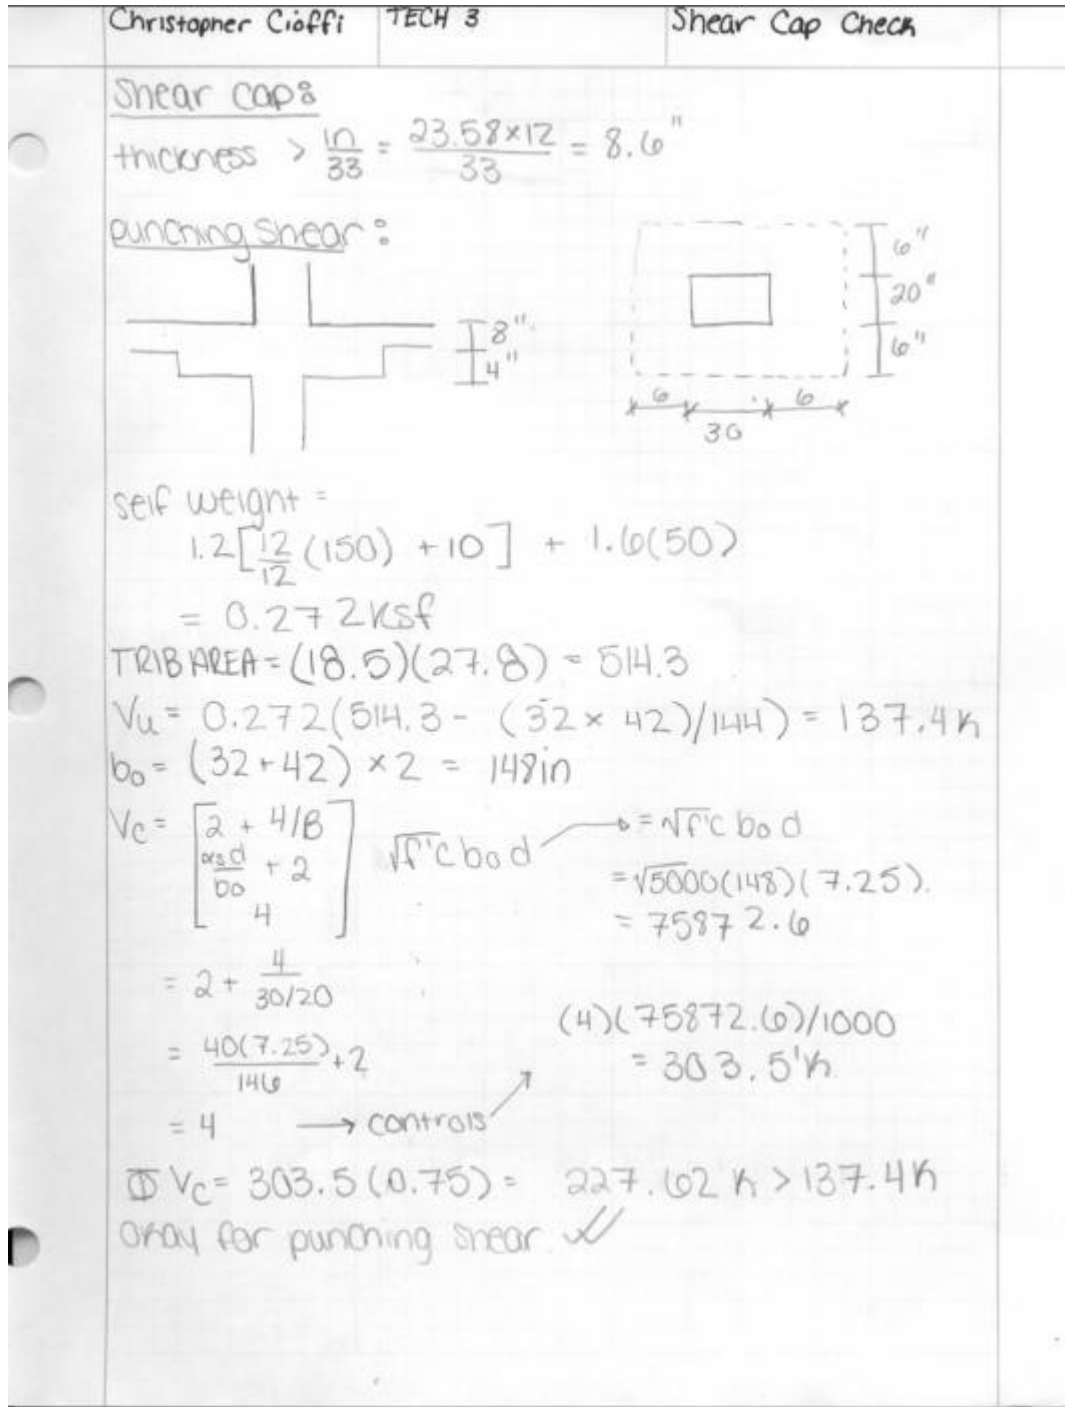 Christopher Cioffi TECH 3 Shear Cap Check
Shear cap:
thickness > ln/33 = 23.58×12/33 = 8.6"
punching shear:
6"
20"
6"
8"
4"
6 6
30
self weight =
1.2[12/12 (150) + 10] + 1.6(50)
= 0.272 ksf
TRIB AREA = (18.5)(27.8) = 514.3
Vu = 0.272(514.3 - (32 × 42)/144) = 137.4k
bo = (32+42) × 2 = 148in
Vc = [2 + 4/B
αsd/bo + 2
4] √f'c bod
= √f'c bod
= √5000(148)(7.25).
= 75872.6
= 2 + 4/30/20
= 40(7.25)/146 + 2
= 4 → controls
(4)(75872.6)/1000
= 303.5'k
Φ Vc = 303.5(0.75) = 227.62 k > 137.4k
okay for punching shear